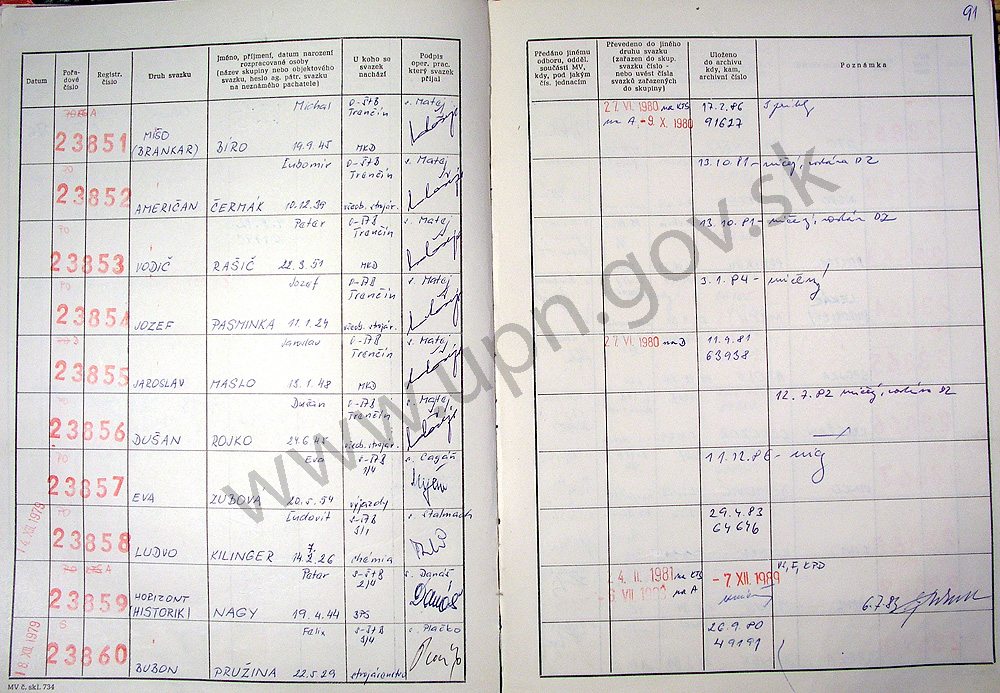 91
Datum
Pořa-
dové
číslo
Registr.
číslo
Druh svazku
Jméno, příjmení, datum narození
rozpracované osoby
(název skupiny nebo objektového
svazku, heslo ag. pátr. svazku
na neznámého pachatele)
U koho se
svazek
nachází
Podpis
oper. prac.
který svazek
přijal
Předáno jinému
odboru, odděl.
součásti MV,
kdy, pod jakým
čís. jednacím
Převedeno do jiného
druhu svazku
(zařazen do skup.
svazku číslo -
nebo uvést čísla
svazků zařazených
do skupiny)
Uloženo
do archivu
kdy, kam,
archivní číslo
Poznámka
Michal O-ŠTB s. Matej
A Trenčín
23851 MIŠO
(BRANKAR) BÍRO 19.9.45 MKD
27. VI. 1980 na KTS 17.2.86
na A - 9. X. 1980 91627
Ľubomír O-ŠTB s. Matej
PO Trenčín
23852 AMERIČAN ČERMÁK 10.12.39 všeob. strojár.
13.10.81
Peter O-ŠTB s. Matej
PO Trenčín
23853 VODIČ RAŠIČ 22.3.51 MKD
13.10.81
Jozef O-ŠTB s. Matej
PO Trenčín
23854 JOZEF PASMINKA 11.1.24 všeob. strojár.
3.1.84
Jaroslav O-ŠTB s. Matej
Trenčín
23855 JAROSLAV MASLO 13.1.48 MKD
27. VI. 1980 na D 11.9.81
63938
Dušan O-ŠTB s. Matej
PO Trenčín
23856 DUŠAN ROJKO 24.6.45 všeob. strojár.
12.7.82
Eva S-ŠTB s. Cagáň
PO 2/4
23857 EVA ZUBOVA 20.5.54 výjazdy
11.12.86
14. XII. 1979
Ľudovít S-ŠTB s. Stalmach
PO 3/1
23858 LUDVO KILINGER 14.7.26 chémia
29.4.83
64646
Peter S-ŠTB s. Danáš
2/4
23859 HORIZONT
(HISTORIK) NAGY 19.4.44 3PS Danáš
4. II. 1981 na KTS - 7. XII. 1989
na A
6.7.83
18. XII. 1979
Felix S-ŠTB s. Plačko
S 3/4
23860 BUBON PRUŽINA 22.5.29 strojárenstvo
26.9.80
49191
MV č. skl. 734
www.upn.gov.sk